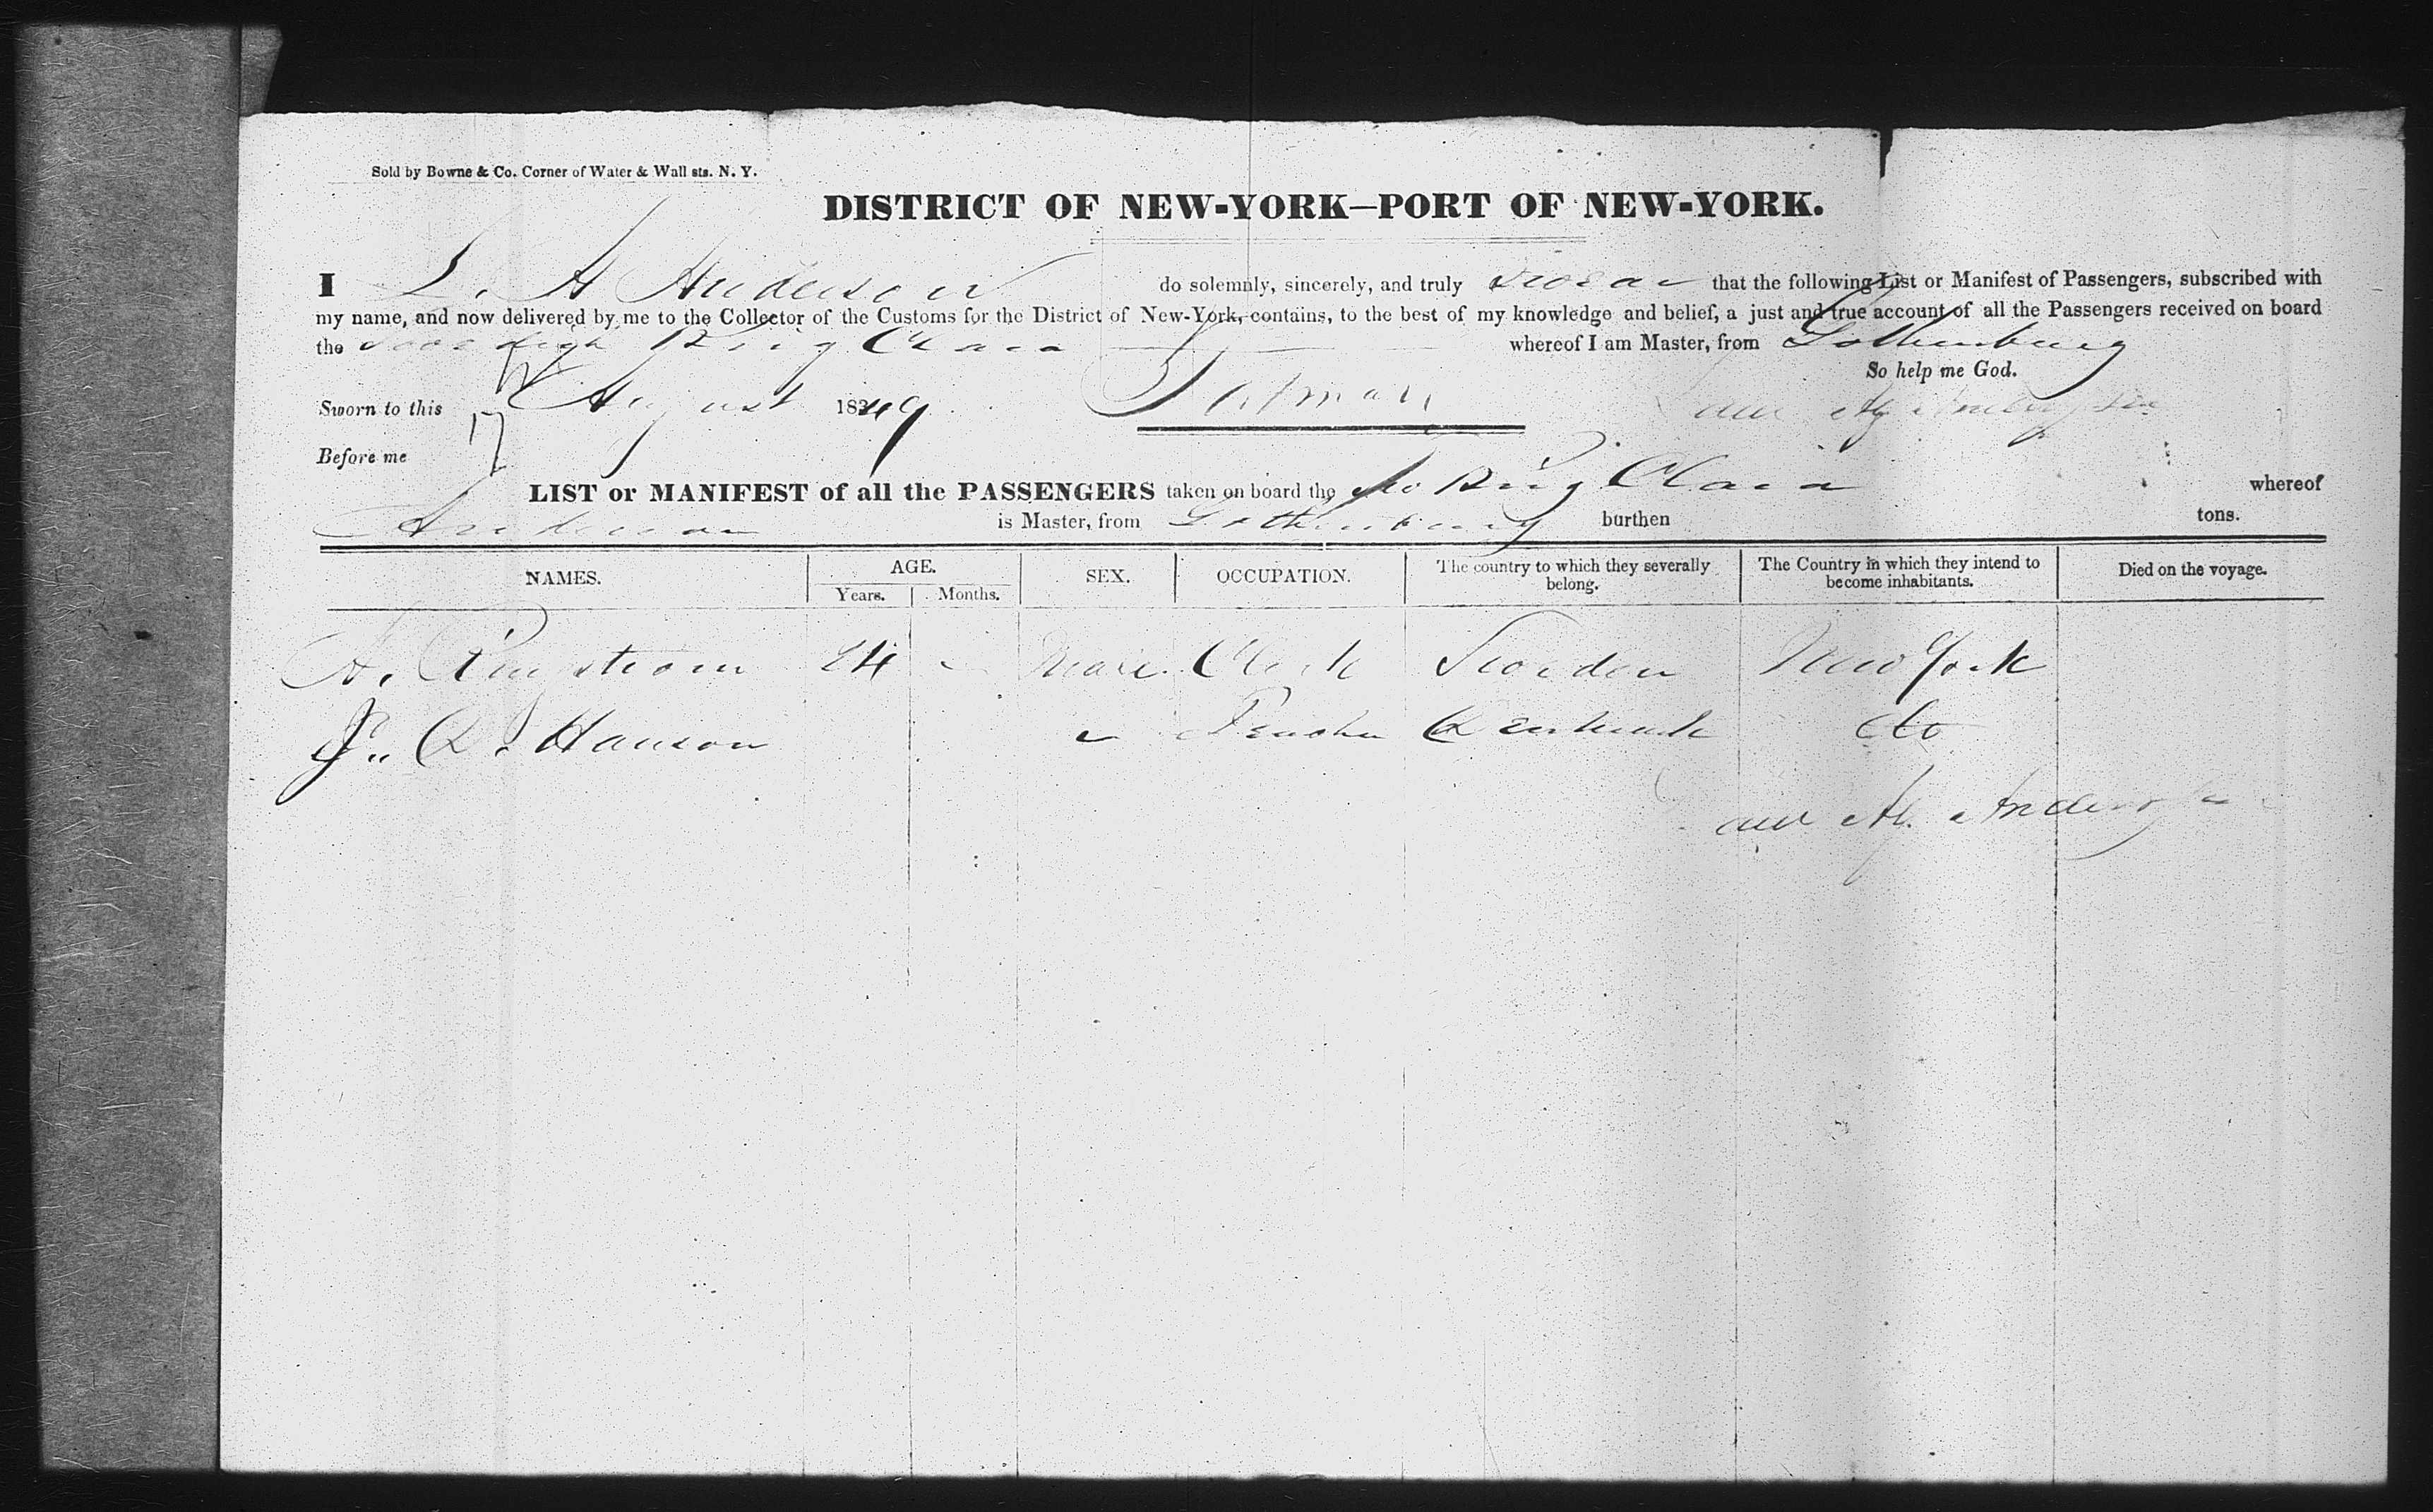 Sold by Bowne & Co. Corner of Water & Wall sts. N. Y.
DISTRICT OF NEW-YORK—PORT OF NEW-YORK.
I L. A Anderson do solemnly, sincerely, and truly swear that the following List or Manifest of Passengers, subscribed with
my name, and now delivered by me to the Collector of the Customs for the District of New-York, contains, to the best of my knowledge and belief, a just and true account of all the Passengers received on board
the Swedish Brig Clara whereof I am Master, from Gothenburg
So help me God.
Sworn to this 17 August 1849
Before me
LIST or MANIFEST of all the PASSENGERS taken on board the Sw Brig Clara whereof
Anderson is Master, from Gothenburg burthen tons.
NAMES. AGE. SEX. OCCUPATION. The country to which they severally belong. The Country in which they intend to become inhabitants. Died on the voyage.
Years. Months.
A. 24 Male Clerk Sweden New York
J. Hanson Denmark do